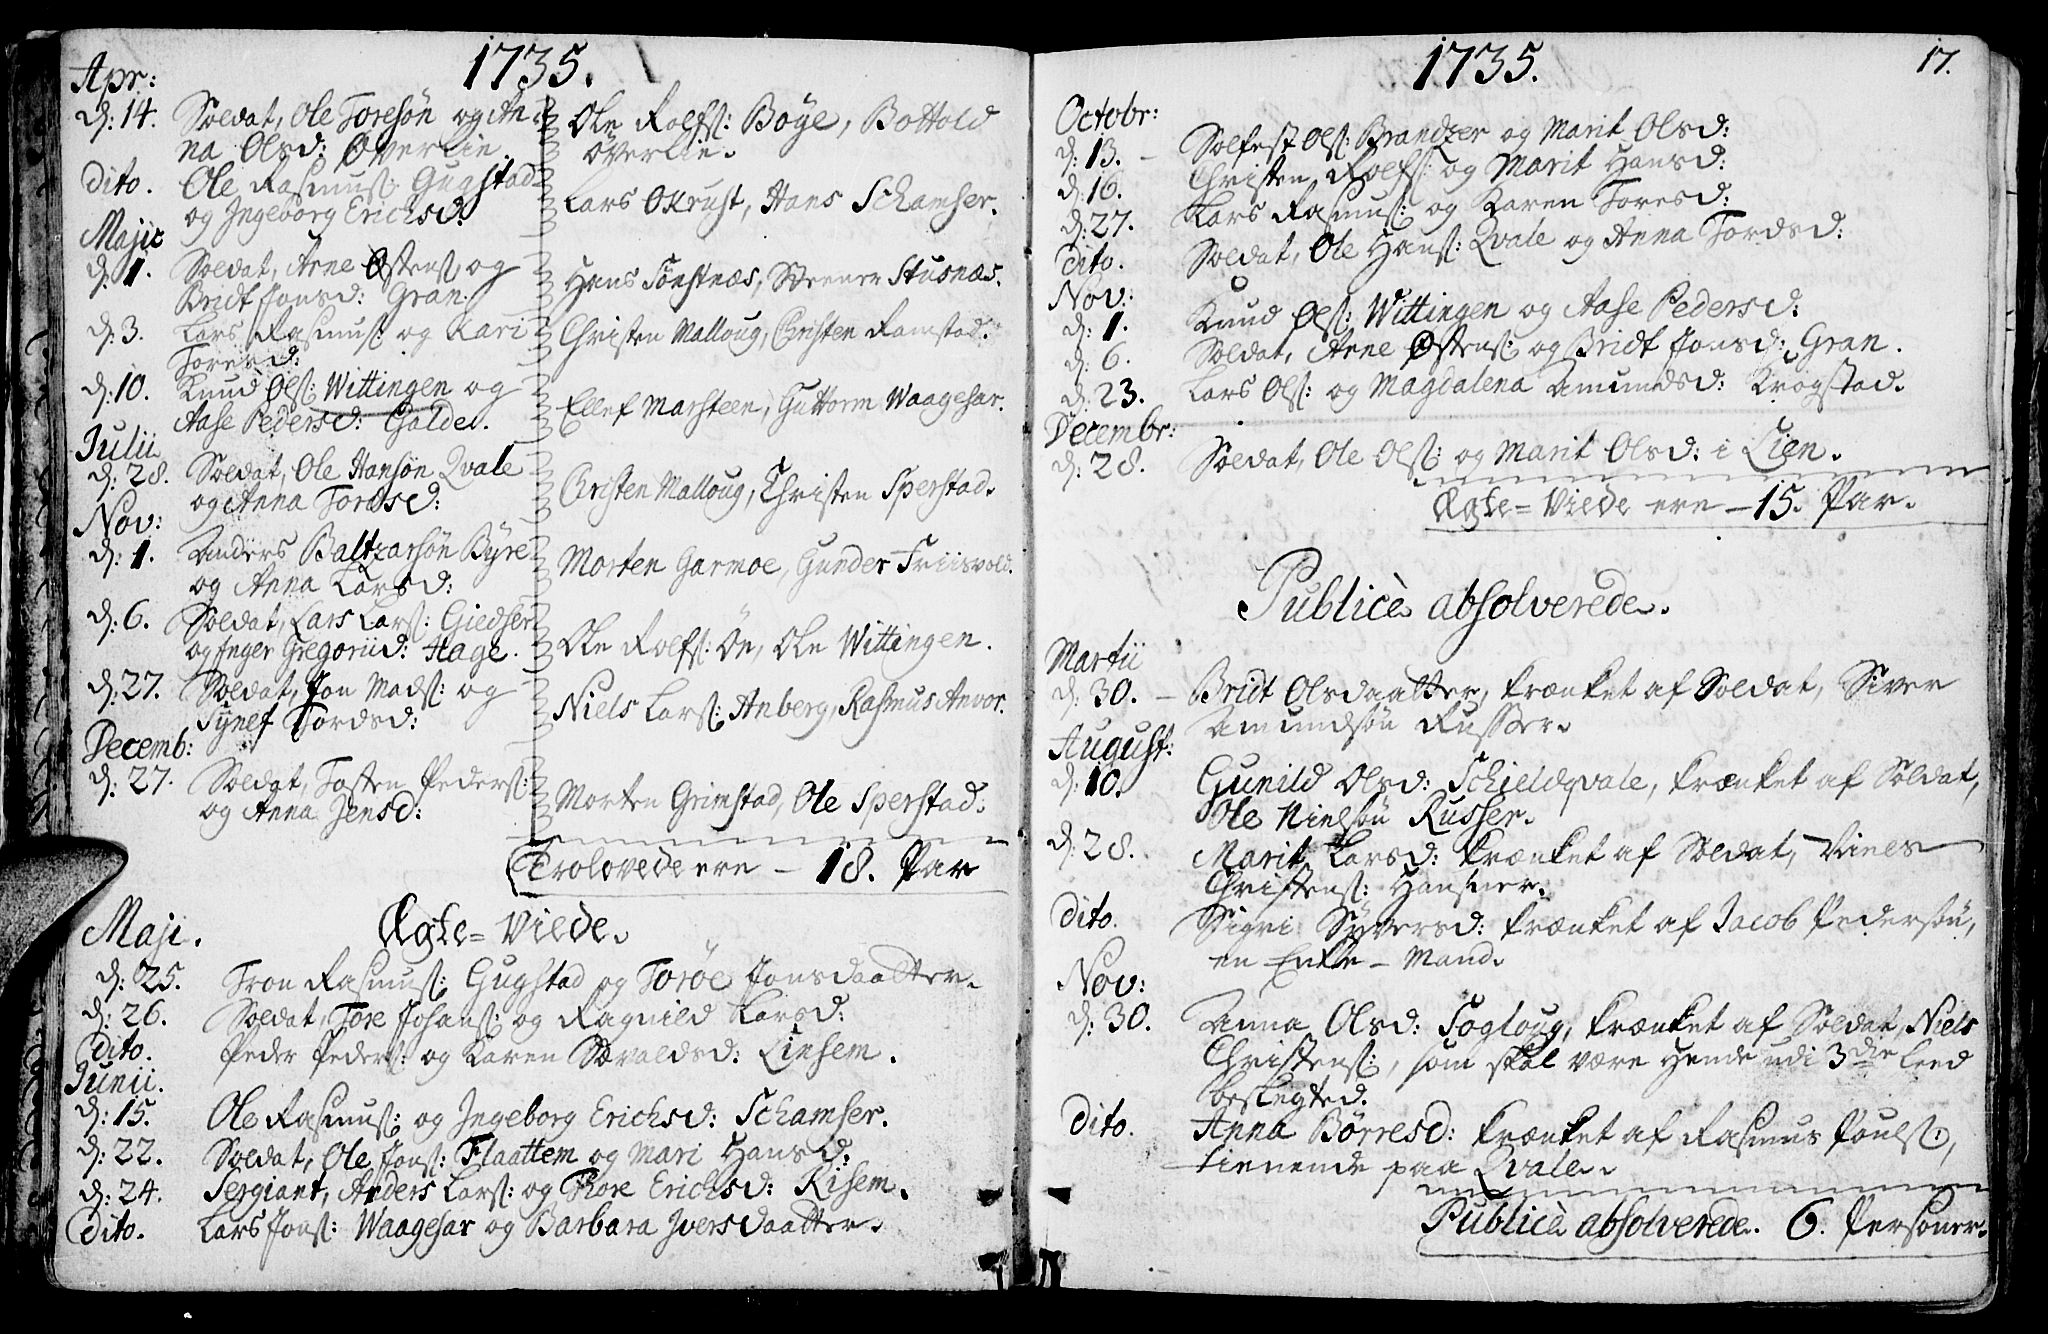 1735.
Apr:
d: 14. Soldat, Ole Toresøn og An-
na Olsd: Øverlie.
Ole Rolfs: Böye, Bottold
överlie.
dito. Ole Rasmus: Gugstad
og Ingeborg Erichsd:
Lars Okrust, Hans Schamser.
Maji
d: 1. Soldat, Arne Østens: og
Bridt Jonsd: Gran.
Hans Tønsnæs, Steener Stusnæs.
d: 3. Lars Rasmus: og Kari
Toresd:
Christen Malloug, Christen Ramstad.
d: 10. Knud Øls: Wittingen og
Aase Pedersd: Galde.
Ellef Marsteen, Guttorm Waagesar.
Julii
d: 28. Soldat, Ole Hansøn Qvale
og Anna Tordsd:
Christen Malloug, Christen Sperstad.
Nov:
d: 1. Anders Baltzarsøn Byre
og Anna Larsd:
Morten Garmoe, Gunder Friisvold.
d: 6. Soldat, Lars Lars: Giedser
og Inger Gregoriid: Hage.
Ole Rolfs: Øe, Ole Wittingen.
d: 27. Soldat, Jon Mads: og
Synef Tordsd:
Niels Lars: Anberg, Rasmus Anvor.
Decemb:
d: 27. Soldat, Tosten Peders:
og Anna Jensd:
Morten Grimstad, Ole Sperstad.
Trolovede ere – 18. Par
Ægte=Viede.
Maji.
d: 25. Tron Rasmus: Gugstad og Torøe Jonsdaatter.
d: 26. Soldat, Tore Johans: og Ragnild Larsd:
dito. Peder Peders: og Karen Sævaldsd: Linsem.
Junii.
d: 15. Ole Rasmus: og Ingeborg Erichsd: Schamser.
d: 22. Soldat, Ole Jons: Flaattem og Mari Hansd:
d: 24. Sergiant, Anders Lars: og Thore Erichsd: Risem.
dito. Lars Jons: Waagesar og Barbara Iversdaatter.
1735.
17.
Octobr:
d: 13. – Solfest Ols: Brandzer og Marit Olsd:
d: 16. Christen Rolfs: og Marit Hansd:
d: 27. Lars Rasmus: og Karen Toresd:
dito. Soldat, Ole Hans: Qvale og Anna Tordsd:
Nov:
d: 1. Knud Øls: Wittingen og Aase Pedersd:
d: 6. Soldat, Arne Østens: og Bridt Jonsd: Gran.
d: 23. Lars Ols: og Magdalena Amundsd: Krogstad.
Decembr:
d: 28. Soldat, Ole Ols: og Marit Olsd: i Lien.
Ægte=Viede ere – 15. Par.
Publicè absolverede.
Martii
d: 30. – Bridt Olsdaatter, krænket af Soldat, Siver
Amundsøn Russer.
August:
d: 10. Gunild Olsd: Schieldqvale, krænket af Soldat,
Ole Nielsøn Russer.
d: 28. Marit Larsd: krænket af Soldat, Niels
Christens: Hansner.
dito. Sigri Syversd: krænket af Jacob Pedersøn,
en Enke-Mand.
Nov:
d: 30. Anna Olsd: Togloug, krænket af Soldat, Niels
Christens:, som skal være hende udi 3die Leed
beslegted.
dito. Anna Børresd: krænket af Rasmus Pouls:,
tienende paa Qvale.
Publicè absolverede. 6. Personer.